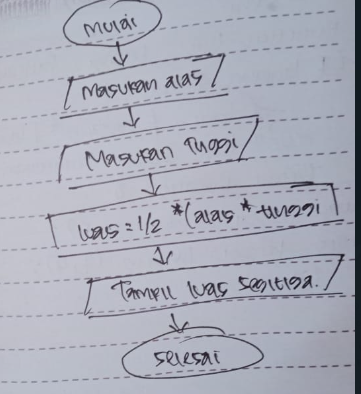 mulai
Masukan alas
Masukan Tinggi
luas = 1/2 * (alas * tinggi
Tampil luas segitiga.
selesai